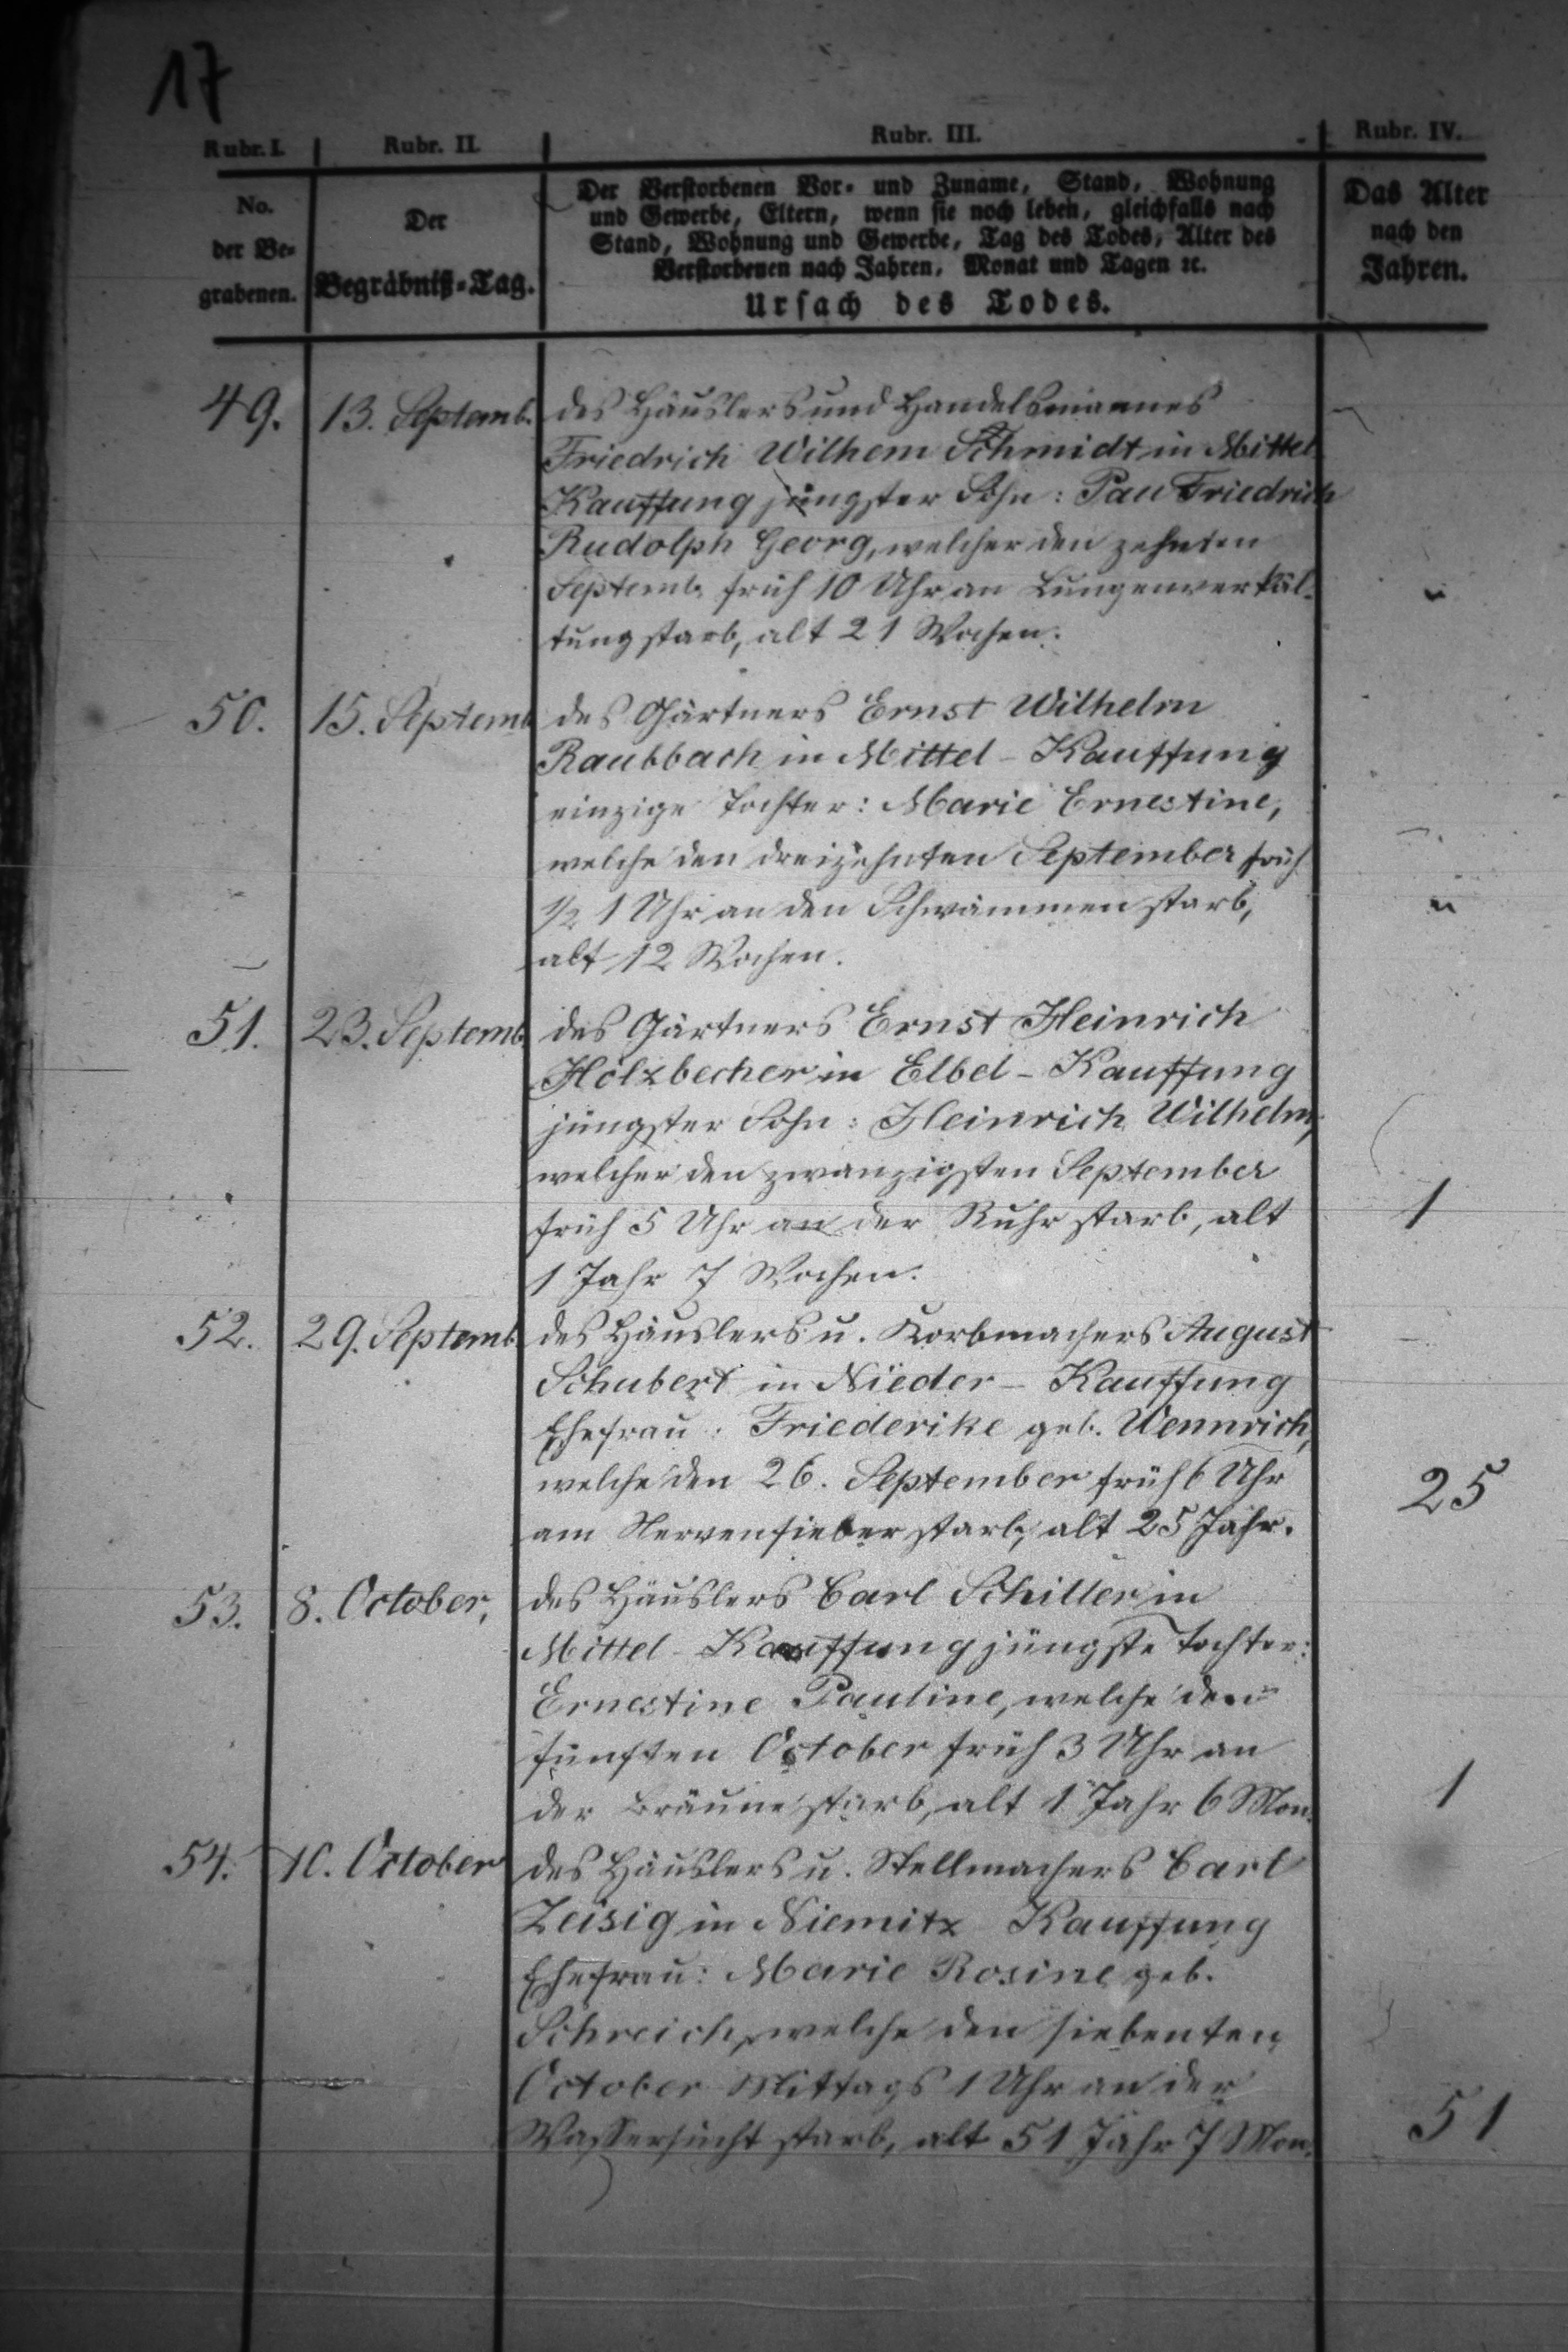 17
Rubr. I. Rubr. II. Rubr. III. Rubr. IV.
No.
der Be-
grabenen.
Der
Begräbniß-Tag.
Der Verstorbenen Vor- und Zuname, Stand, Wohnung
und Gewerbe, Eltern, wenn sie noch leben, gleichfalls nach
Stand, Wohnung und Gewerbe, Tag des Todes, Alter des
Verstorbenen nach Jahren, Monat und Tagen ꝛc.
Ursach des Todes.
Das Alter
nach den
Jahren.
49. 13. Septemb. des Häuslers und Handelsmannes
Friedrich Wilhem Schmidt in Mittel
Kauffung jüngster Sohn: Pau Friedrich
Rudolph Georg, welcher den zehnten
Septemb. früh 10 Uhr an Lungenverkäl-
tung starb, alt 21 Wochen.
50. 15. Septemb des Gärtners Ernst Wilhelm
Raubbach in Mittel-Kauffung
einzige Tochter: Marie Ernestine,
welche den dreizehnten September früh
1/2 1 Uhr an den Schwämmen starb,
alt 12 Wochen.
51. 23. Septemb. des Gärtners Ernst Heinrich
Holzbecher in Elbel-Kauffung
jüngster Sohn: Heinrich Wilhelm,
welcher den zwanzigsten September
früh 5 Uhr an der Ruhr starb, alt 1
1 Jahr 7 Wochen.
52. 29. Septemb. des Häuslers u. Korbmachers August
Schubert in Nieder-Kauffung
Ehefrau: Friederike geb. Wennrich,
welche den 26. September früh 6 Uhr 25
am Nervenfieber starb, alt 25 Jahr.
53. 8. October, des Häuslers Carl Schiller in
Mittel-Kauffung jüngste Tochter:
Ernestine Pauline, welche den
fünften October früh 3 Uhr an
der Bräune starb, alt 1 Jahr 6 Mon. 1
54. 10. October des Häuslers u. Stellmachers Carl
Zeisig in Niemitz Kauffung
Ehefrau: Marie Rosine geb.
Schreich, welche den siebenten
October Mittags 1 Uhr an der
Wassersucht starb, alt 51 Jahr 7 Mon. 51